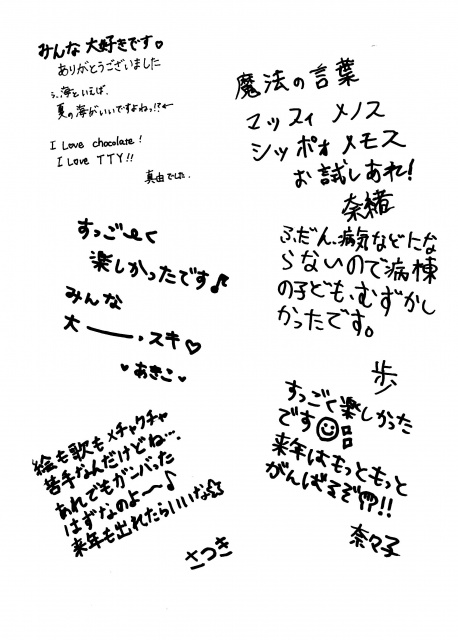 みんな 大好きです♡
ありがとうございました
海といえば、
夏の海がいいですよねっ!?
I Love chocolate!
I Love TTY!!
真由でした.
魔法の言葉
マッスィ メノス
シッポォ メモス
お試しあれ!
奈緒
すっご〜く
楽しかったです♪
みんな
大――・スキ♡
♥あきこ♥
ふだん、病気などにな
らないので病棟
の子ども、むずかし
かったです。
歩
絵も歌もメチャクチャ
苦手なんだけどね…。
あれでもガンバった
はずなのよ〜♪
来年も出れたらいいな☆
さつき
すっごく楽しかった
です☺
来年はもっともっと
がんばるぞ!!
奈々子